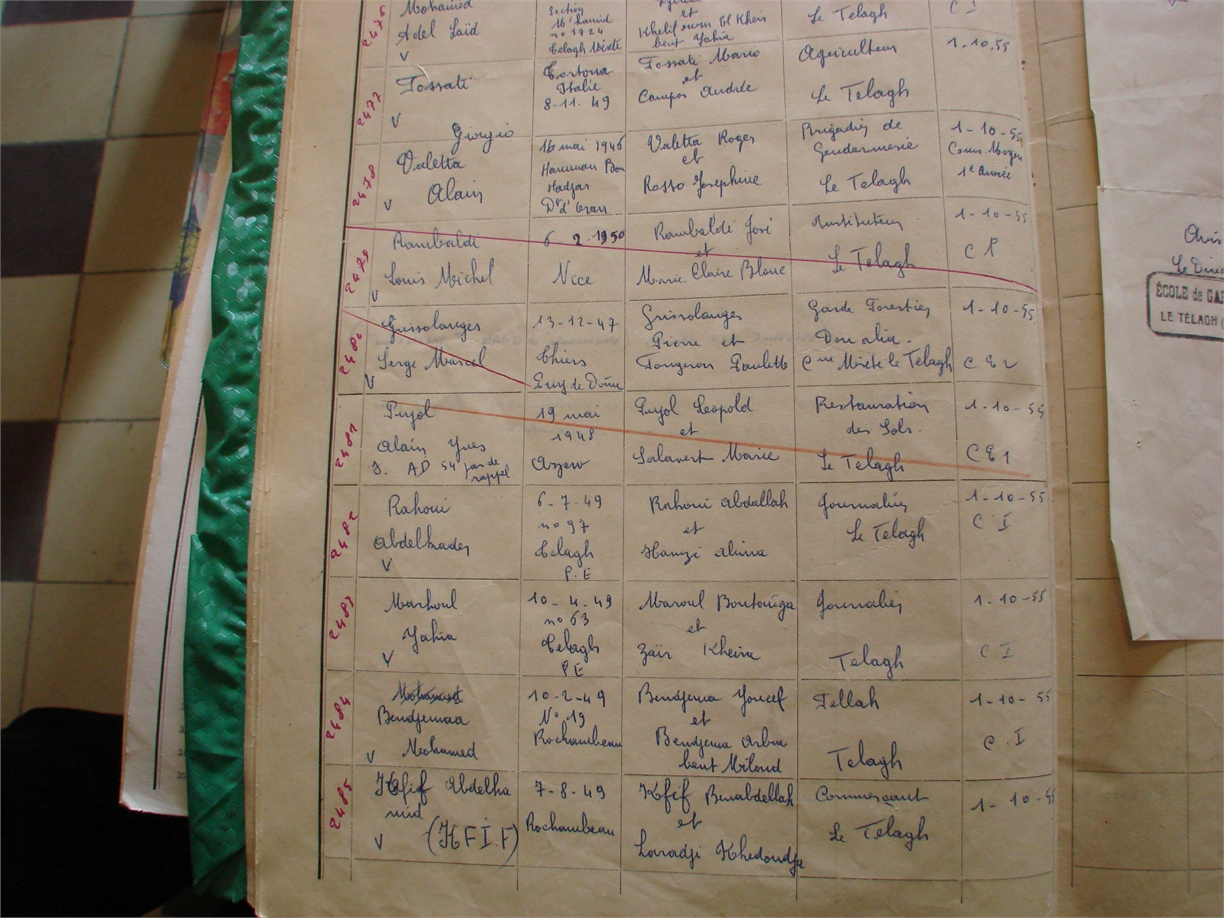 2475 Mohamed Section et Le Telagh C I
Adel Laïd M'hamid no 1724 Khelif oum El Kheir
V Telagh Mixte bent Yahia
2477 Fossati Tortona Fossati Mario Agriculteur 1-10.55
Italie et
8-11.49 Campos Andrée Le Telagh
V Giorgio
2478 Valetta 16 mai 1946 Valetta Roger Brigadier de 1-10-55
Hammam Bou et Gendarmerie Cours Moyen
Alain Hadjar Rosso Josephine Le Telagh 1e Année
V Dt d'Oran
2479 Rambaldi 6-2-1950 Rambaldi José Instituteur 1-10-55
et
Louis Michel Nice Marie Claire Blanc Le Telagh C P
V
2480 Grissolanges 13-12-47 Grissolanges Garde Forestier 1-10-55
Pierre et Daoualia.
Serge Marcel Thiers Fougerou Paulette Cne Mixte le Telagh C E 2
V Puy de Dôme
2481 Pujol 19 mai Pujol Leopold Restauration 1-10-55
1948 et des Sols.
Alain Yves Arzew Salavert Marie Le Telagh C E 1.
J. AD 54 pas de
rappel
2482 Rahoui 6-7-49 Rahoui Abdallah Journalier 1-10-55
no 97 et Le Telagh C I
Abdelkader Telagh Hamzi Alima
V P.E
2483 Marhoul 10-4-49 Maroul Boutouiga Journalier 1-10-55
no 63 et
Yahia Telagh Zaïr Kheira Telagh C I
V P E
2484 Mohamed 10-2-49 Bendjema Youcef Fellah 1-10-55
Bendjemaa No 19 et
V Mohamed Rochambeau Bendjema Arbia Telagh C.I
bent Miloud
2485 Kfif Abdelha 7-8-49 Kfif Benabdellah Commerçant 1-10-55
mid et
V (KFIF) Rochambeau Laradji Khedoudja Le Telagh
ÉCOLE de GA
LE TÉLAGH (